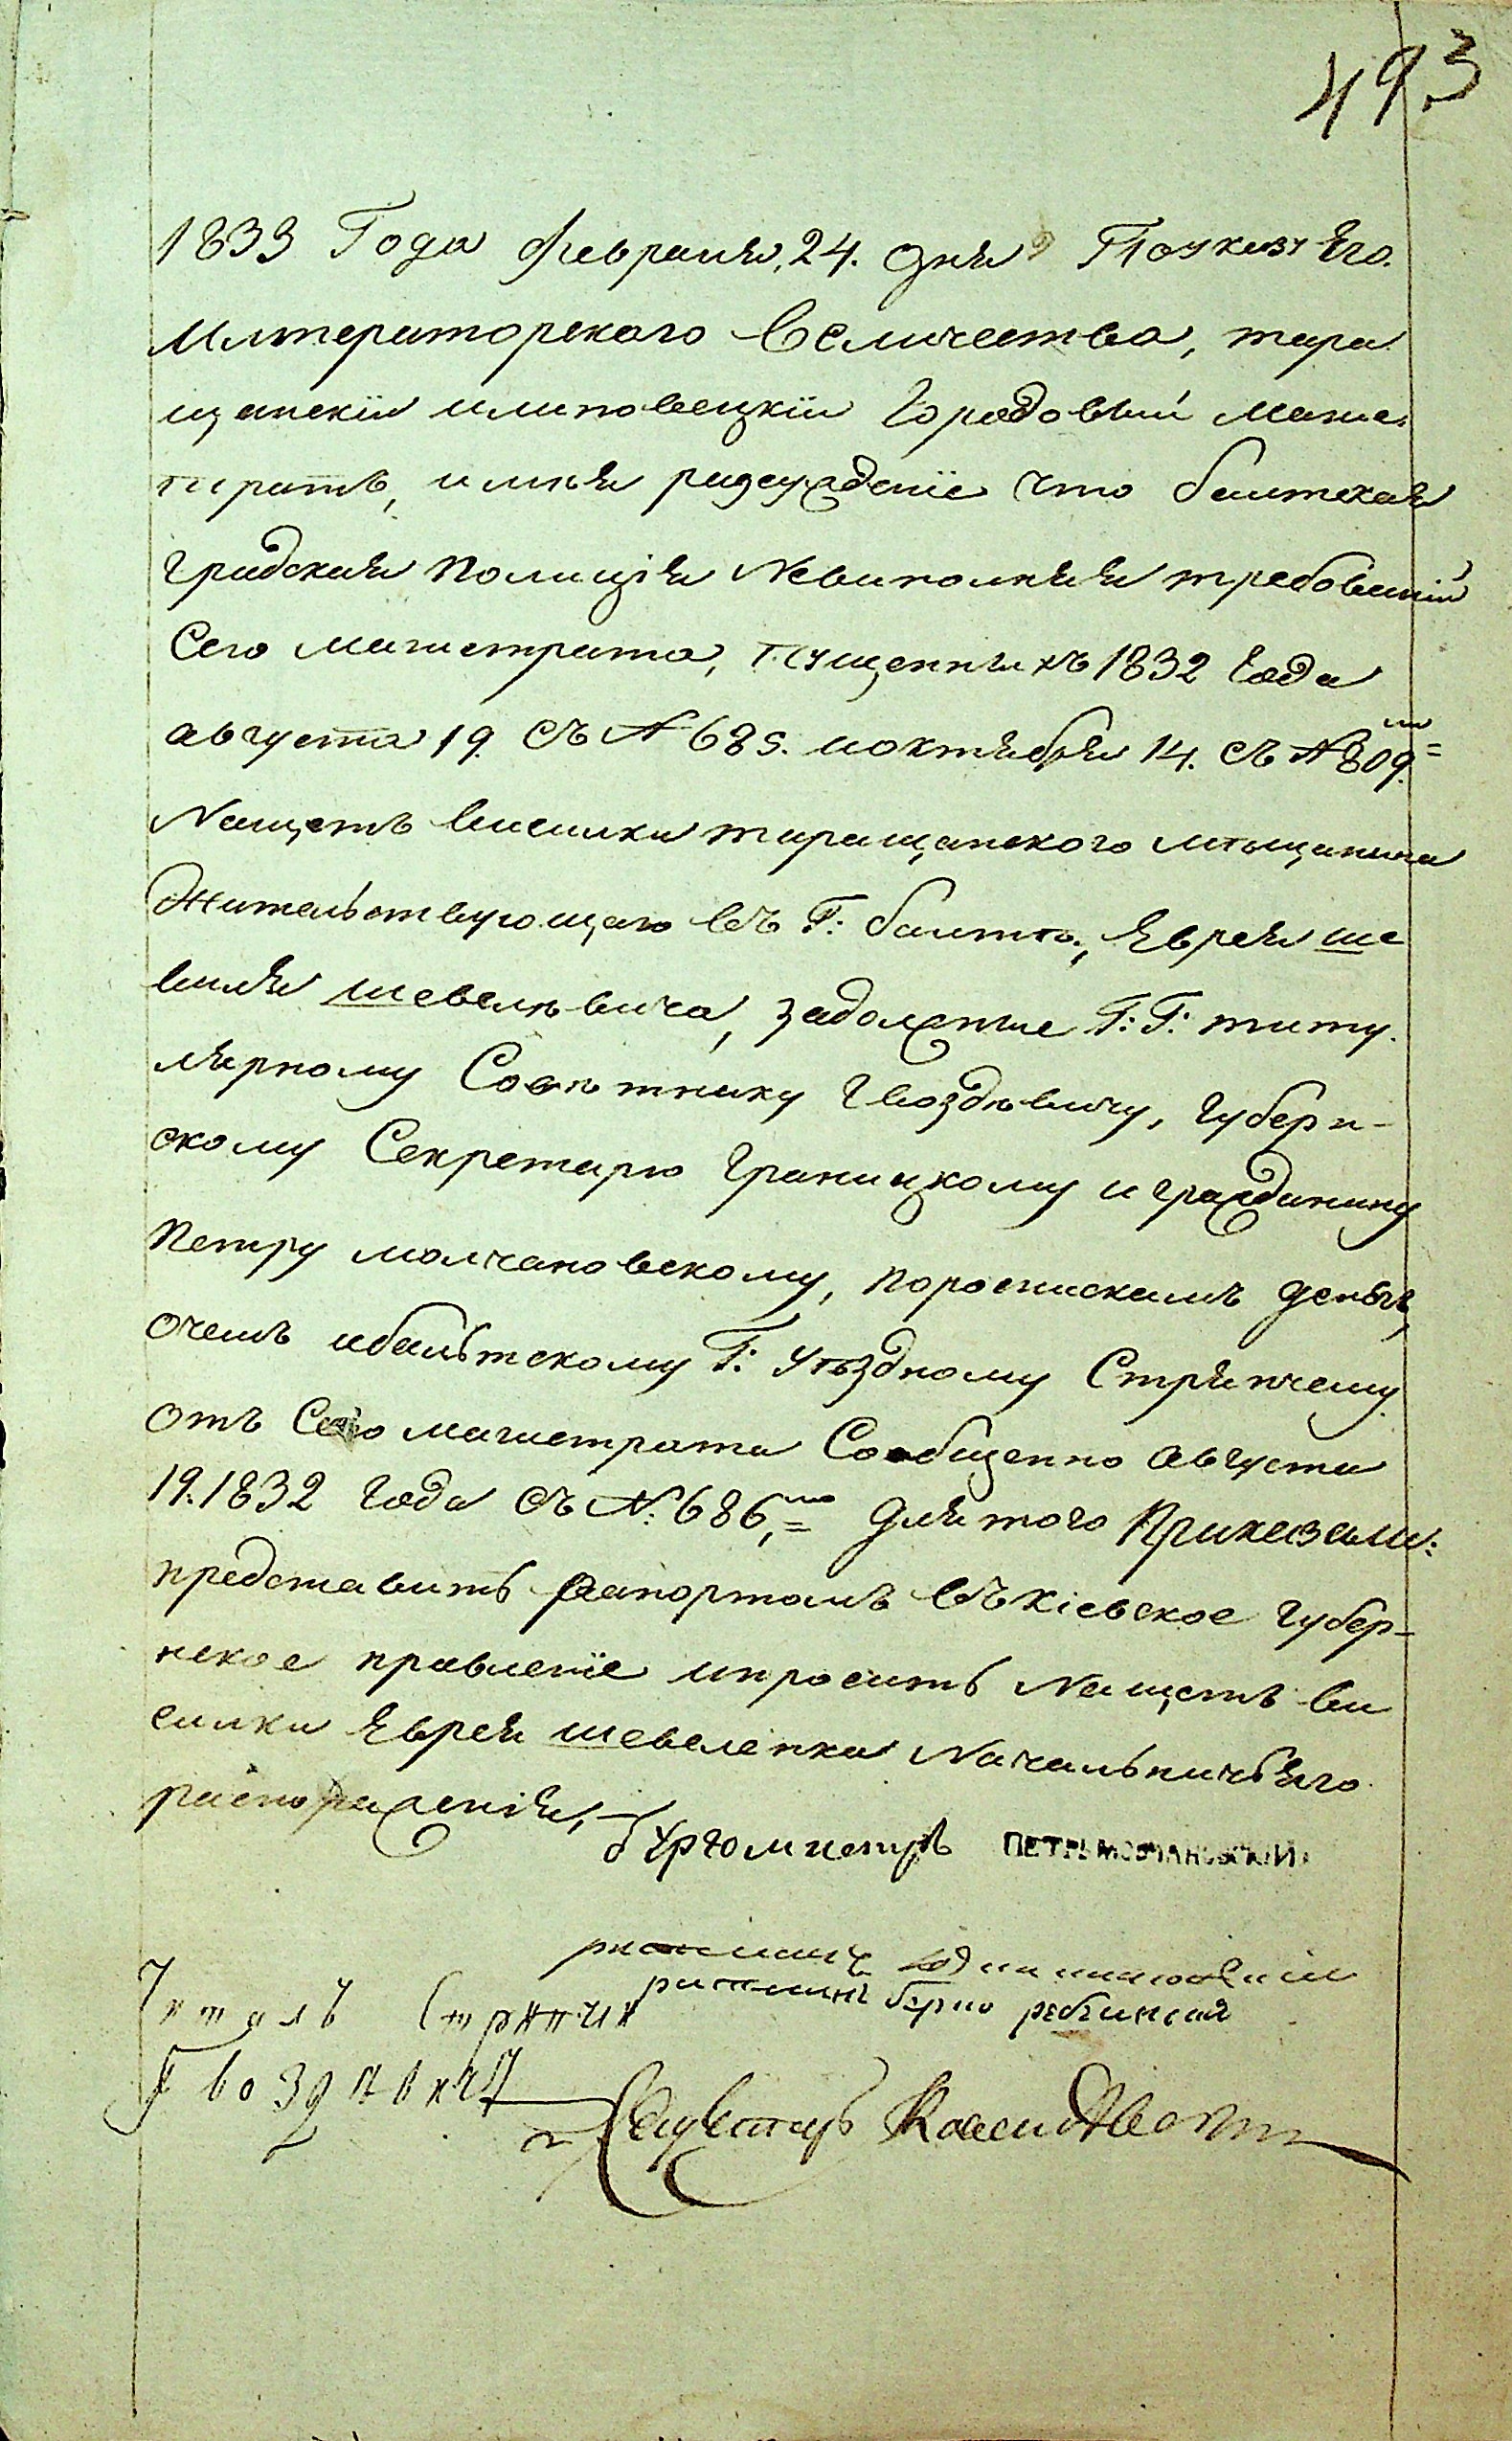 493
1833 Года февраля, 24. дня Поуказу Его
Императорского Величества, тара
щанскїй илиповецкїй Городовый маги
стратъ, имѣя разсуждение что балтская
градская полиція Невиполняя требованій
Сего магистрата, пущенныхъ 1832 года
августа 19. съ № 685. иоктября 14. съ № 809.мъ
Нащетъ висилки таращанского мѣщанина
Жительствующаго въ Г: балтѣ, Еврея ше
виля шевелѣвича, задолжние Г: Г: титу
лярному Совѣтнику Гвоздѣвичу, губерн-
скому Секретарю Границкому и гражданину
Петру молчановскому, поросписками денегъ,
очемъ ибалътскому Г: Уѣздному Стряпчему
отъ Сего магистрата Сообщенно августа
19. 1832 года съ №: 686,мъ длятого Приказали:
представить рапортомъ въ кіевское губер-
нское правленіе ипросить Нащетъ ви
силки Еврея шевеленка Начальничьяго
распоряженія,
бургомистръ ПЕТРЪ МОВЧАНОВСКІЙ
ратманъ
ратманъ
Читалъ Стряпчи
Гвоздѣвичъ
Секретарь